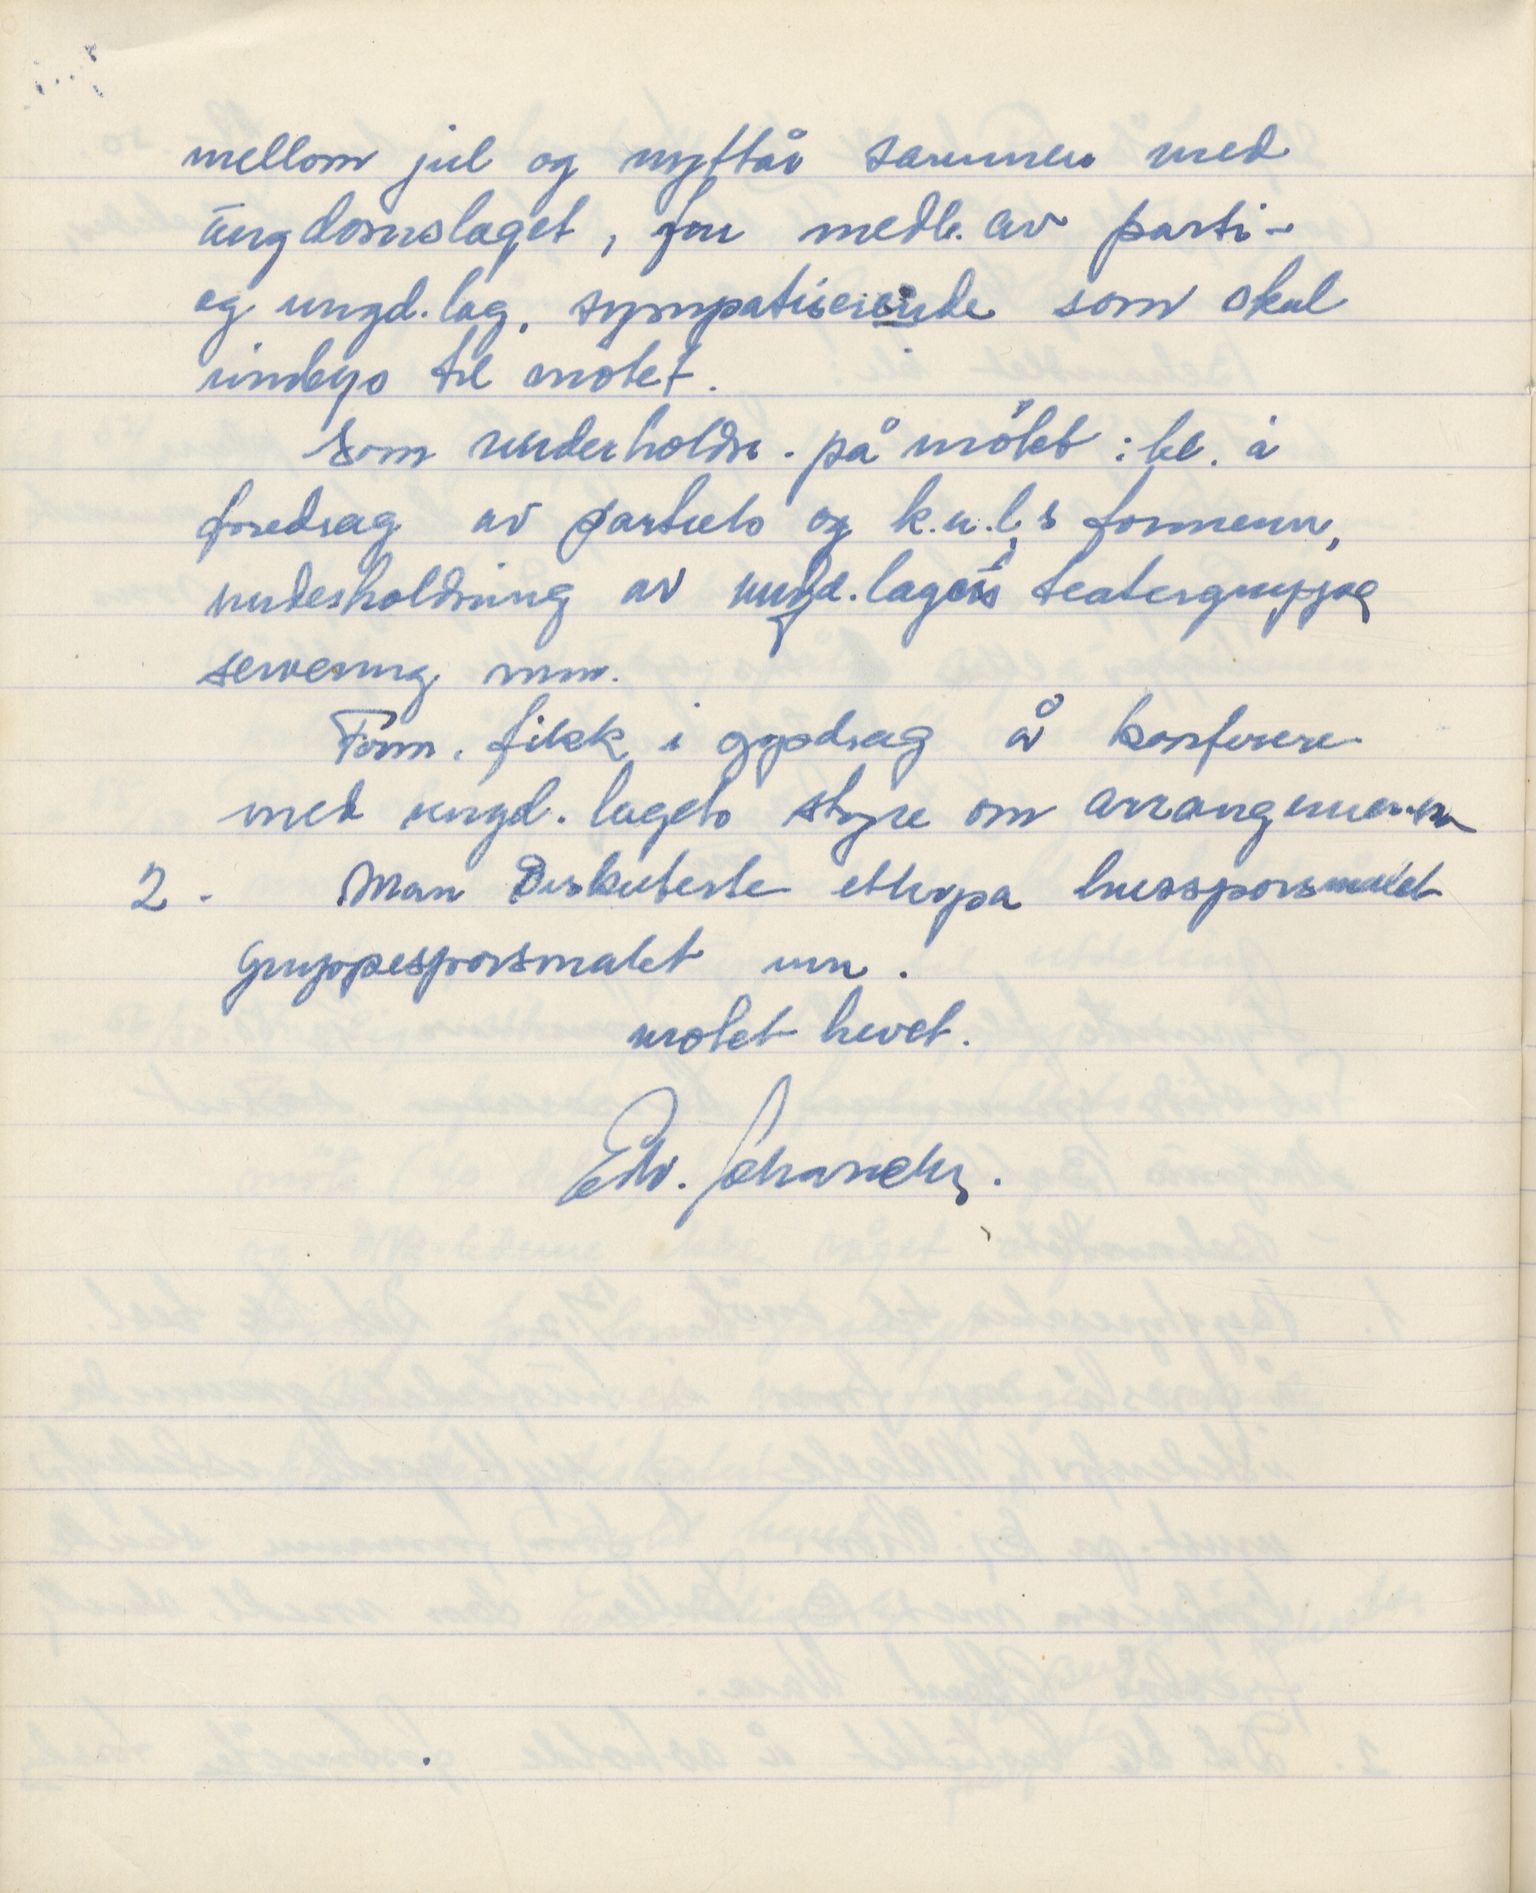 mellom jul og nyttår sammen med
ungdomslaget, for medl. av parti-
og ungd.lag, sympatiserende som skal
innbys til møtet.
Som underholdn. på møtet: bl. a
foredrag av partiets og k.u.l,s formenn,
underholdning av ungd.lagets teatergruppe
servering mm.
Form. fikk i oppdrag å konferere
med ungd. lagets styre om arrangementet
2 - Man diskuterte husspørsmålet
gruppespørsmålet mm.
møtet hevet.
Edv. Johansen.